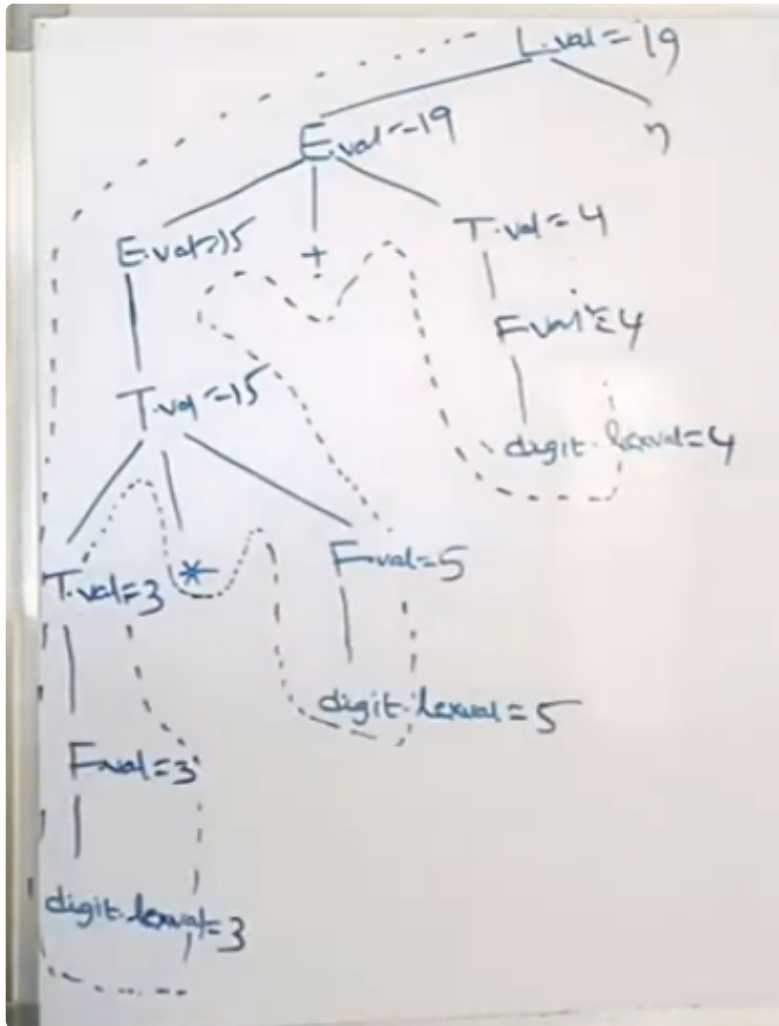 L.val=19
E.val=19
n
E.val=15
+
T.val=4
F.val=4
T.val=15
digit.lexval=4
T.val=3
*
F.val=5
digit.lexval=5
F.val=3
digit.lexval=3